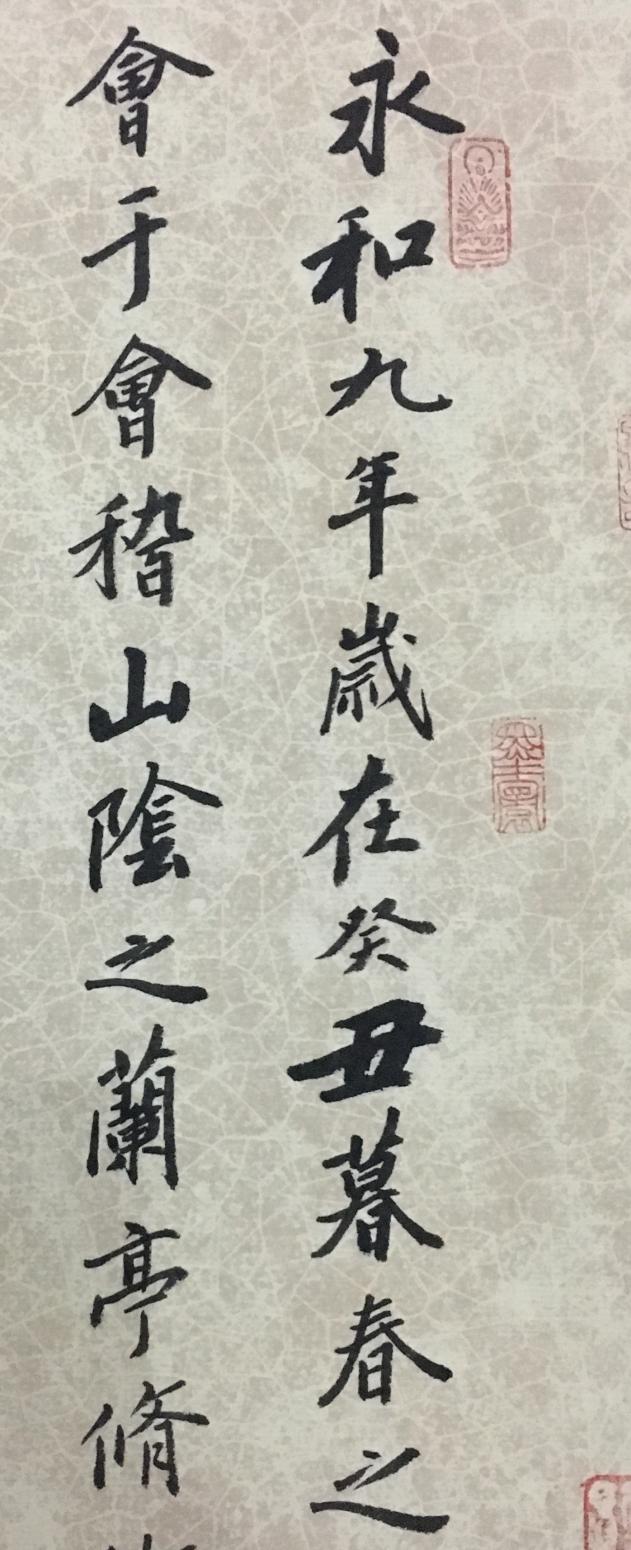 永和九年歲在癸丑暮春之
會于會稽山陰之蘭亭脩